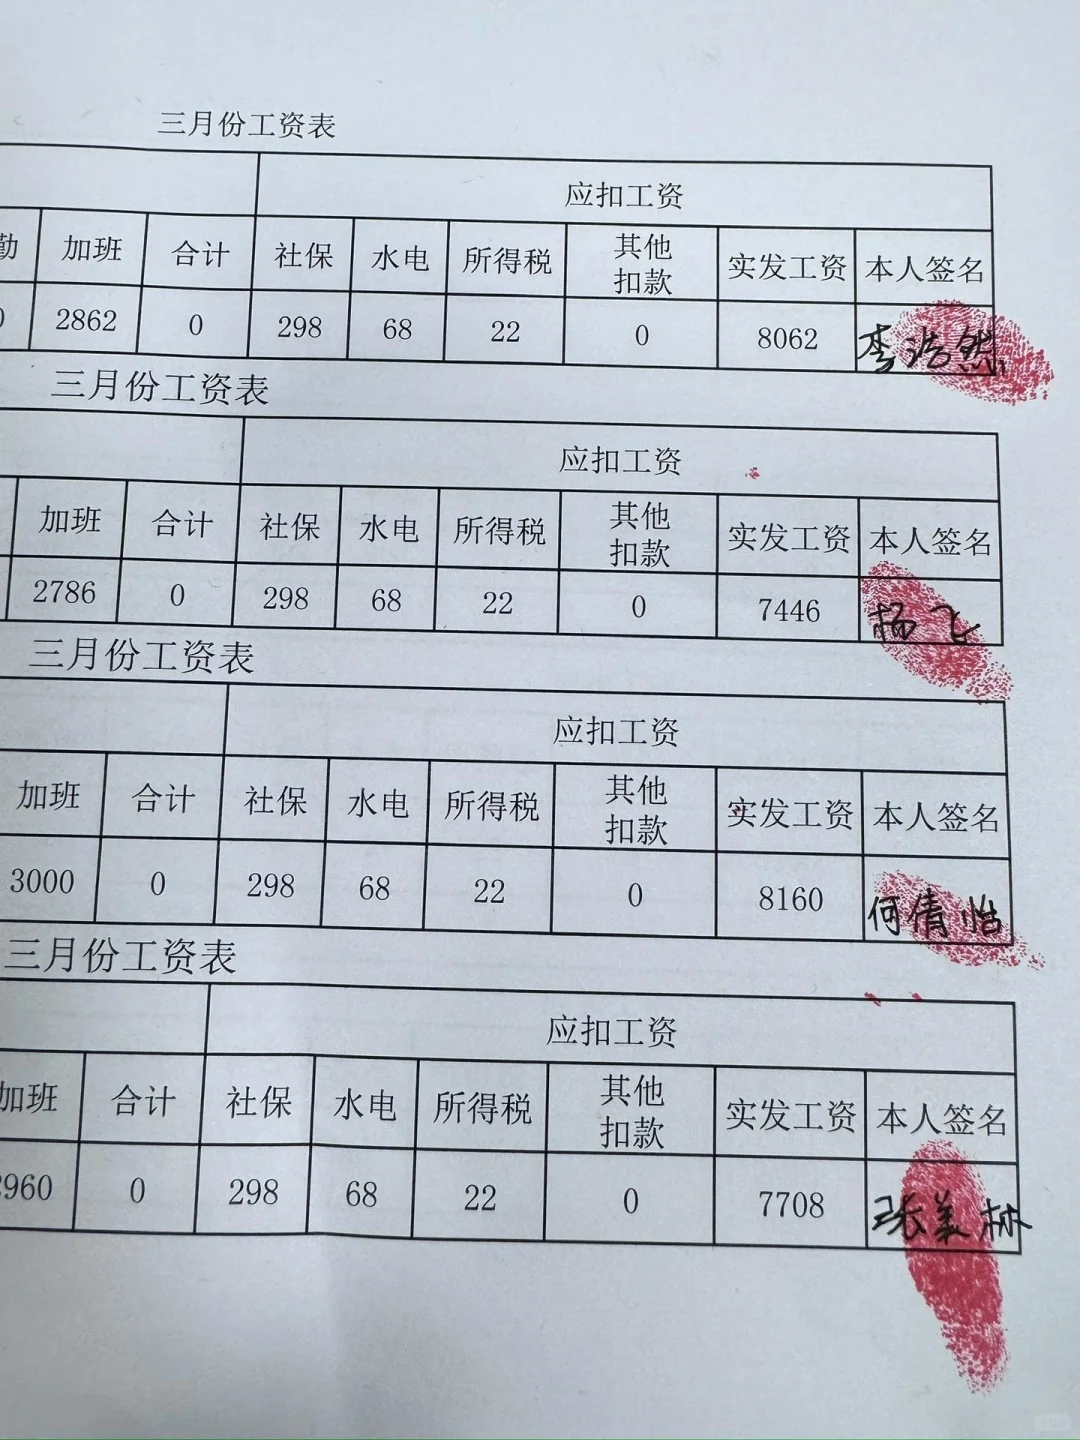 三月份工资表
应扣工资
勤 加班 合计 社保 水电 所得税 其他扣款 实发工资 本人签名
2862 0 298 68 22 0 8062 李浩然
三月份工资表
应扣工资
加班 合计 社保 水电 所得税 其他扣款 实发工资 本人签名
2786 0 298 68 22 0 7446 杨飞
三月份工资表
应扣工资
加班 合计 社保 水电 所得税 其他扣款 实发工资 本人签名
3000 0 298 68 22 0 8160 何倩怡
三月份工资表
应扣工资
加班 合计 社保 水电 所得税 其他扣款 实发工资 本人签名
960 0 298 68 22 0 7708 张美林